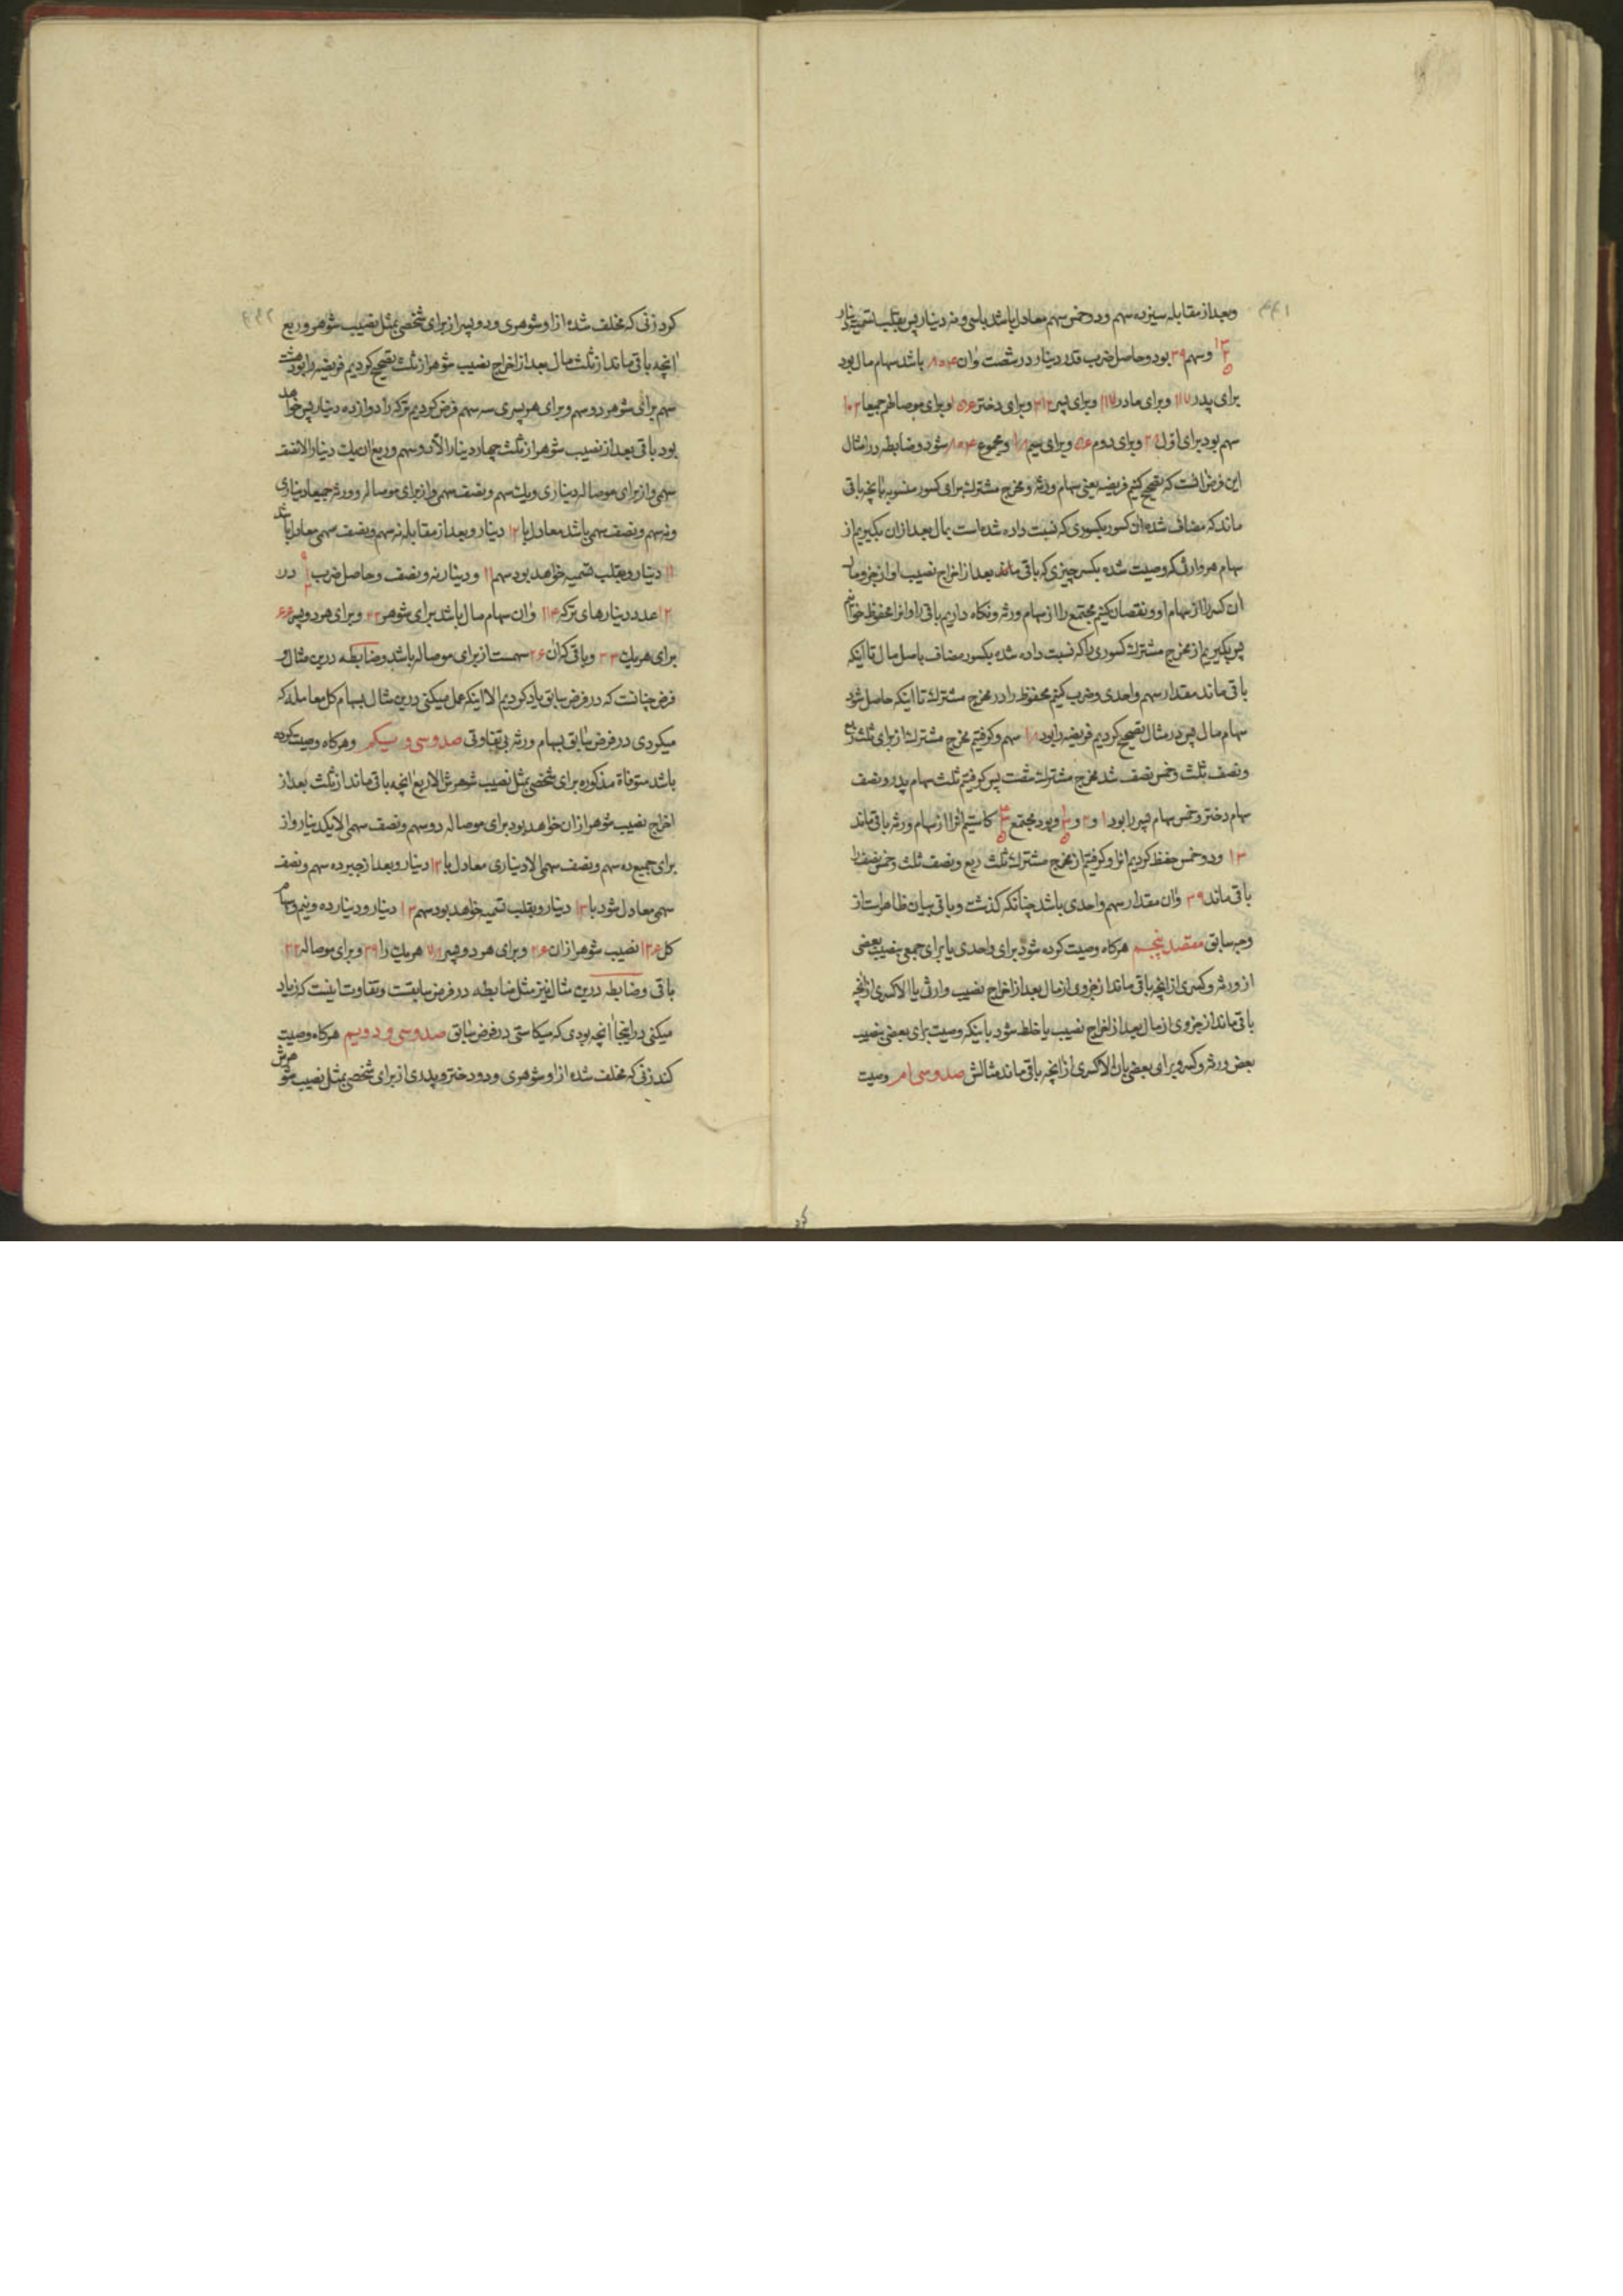 وبعد از مقابله سیزده سهم ودو خمس سهم معادل باشد باسی ونه دینار پس بقلب تسمیه دینار
۱۳ ۲ ۵ وسهم ۳۹ بود وحاصل ضرب قدر دینار در شصت وآن ۸۰۴ باشد سهام مال بود
برای پدر ۱۱۷ وبرای مادر ۱۱۷ وبرای پسر ۳۱۲ وبرای دختر ۱۵۶ وبرای موصا لهم جمیعا ۱۰۲
سهم بود برای اول ۲۸ وبرای دوم ۵۶ وبرای سیم ۱۸ ومجموع ۸۰۴ شود وضابطه در امثال
این فرض آنست که تصحیح کنیم فریضه یعنی سهام ورثه ومخرج مشترک برای کسور منسوبه بآنچه باقی
ماند که مضاف شده آن کسور بکسوری که نسبت داده شده است بمال بعد از آن بگیریم از
سهام هر وارثی که وصیت شده بکسر چیزی که باقی ماند بعد از اخراج نصیب او از جزو مال
آن کسر را از سهام او ونقصان کنیم مجتمع را از سهام ورثه ونگاه داریم باقی را واورا محفوظ خوانیم
پس بگیریم از مخرج مشترک کسوری را که نسبت داده شده بکسور مضاف باصل مال تا اینکه
باقی ماند مقدار سهم واحدی وضرب کنیم محفوظ را در مخرج مشترک تا اینکه حاصل شود
سهام مال پس در مثال تصحیح کردیم فریضه را بود ۱۸ سهم وگرفتیم مخرج مشترک از برای ثلث ربع
ونصف ثلث وخمس نصف شد مخرج مشترک شصت پس گرفتیم ثلث سهام پدر ونصف
سهام دختر وخمس سهام پسر را بود ۱ و۲ و ۱ ۳ ۵ وبود مجتمع ۴ ۳ ۵ کاستیم آنرا از سهام ورثه باقی ماند
۱۳ ودو خمس حفظ کردیم آنرا وگرفتیم از مخرج مشترک ثلث ربع ونصف ثلث وخمس نصف را
باقی ماند ۳۹ وآن مقدار سهم واحدی باشد چنانکه گذشت وباقی بیان ظاهر است از
وجه سابق مقصد پنجم هرگاه وصیت کرده شود برای واحدی یا برای جمعی بنصیب بعضی
از ورثه وکسری از آنچه باقی ماند از جزوی از مال بعد از اخراج نصیب وارثی یا الا کسری از آنچه
باقی ماند از جزوی از مال بعد از اخراج نصیب یا خلط شود باینکه وصیت برای بعضی بنصیب
بعض ورثه وکسر وبرای بعضی بآن الا کسری از آنچه باقی ماند مثالش صد وسی ام وصیت
کرد زنی که مخلف شده از او شوهری ودو پسر از برای شخصی بمثل نصیب شوهر وربع
آنچه باقی ماند از ثلث مال بعد از اخراج نصیب شوهر از ثلث تصحیح کردیم فریضه را بود هشت
سهم برای شوهر دو سهم وبرای هر پسری سه سهم فرض کردیم ترکه را دوازده دینار پس خواهد
بود باقی بعد از نصیب شوهر از ثلث چهار دینار الا دو سهم وربع آن یک دینار الا نصف
سهمی واز برای موصا له دیناری ویک سهم ونصف سهمی واز برای موصا له وورثه جمیعا دیناری
ونه سهم ونصف سهمی باشد معادل با ۱۲ دینار وبعد از مقابله نه سهم ونصف سهمی معادل باشد
۱۱ دینار وبقلب تسمیه خواهد بود سهم ۱۱ ودینار نه ونصف وحاصل ضرب ۹ ۱ ۲ در
۱۲ عدد دینارهای ترکه ۱۱۴ وآن سهام مال باشد برای شوهر ۲۲ وبرای هر دو پسر ۶۶
برای هر یک ۳۳ وباقی که آن ۲۶ سهمست از برای موصا له باشد وضابطه درین مثال و
فرض چنانست که در فرض سابق یاد کردیم الا اینکه عمل میکنی درین مثال بسهام کل معامله که
میکردی در فرض سابق بسهام ورثه بی تفاوتی صد وسی ویکم وهرگاه وصیت کرده
باشد متوفاة مذکوره برای شخصی بمثل نصیب شوهرش الا ربع آنچه باقی ماند از ثلث بعد از
اخراج نصیب شوهر از آن خواهد بود برای موصا له دو سهم ونصف سهمی الا یکدینار واز
برای جمیع ده سهم ونصف سهمی الا دیناری معادل با ۱۲ دینار وبعد از جبر ده سهم ونصف
سهمی معادل شود با ۱۳ دینار وبقلب تسمیه خواهد بود سهم ۱۳ دینار ودینار ده ونیم وسهام
کل ۱۲۶ نصیب شوهر از آن ۲۶ وبرای هر دو پسر ۷۸ هر یک را ۳۹ وبرای موصا له ۲۲
باقی وضابطه درین مثال نیز مثل ضابطه در فرض سابقست وتفاوت اینست که زیاد
میکنی در اینجا آنچه بودی که میکاستی در فرض سابق صد وسی ودویم هرگاه وصیت
کند زنی که مخلف شده از او شوهری ودو دختر وپدری از برای شخصی بمثل نصیب شوهرش